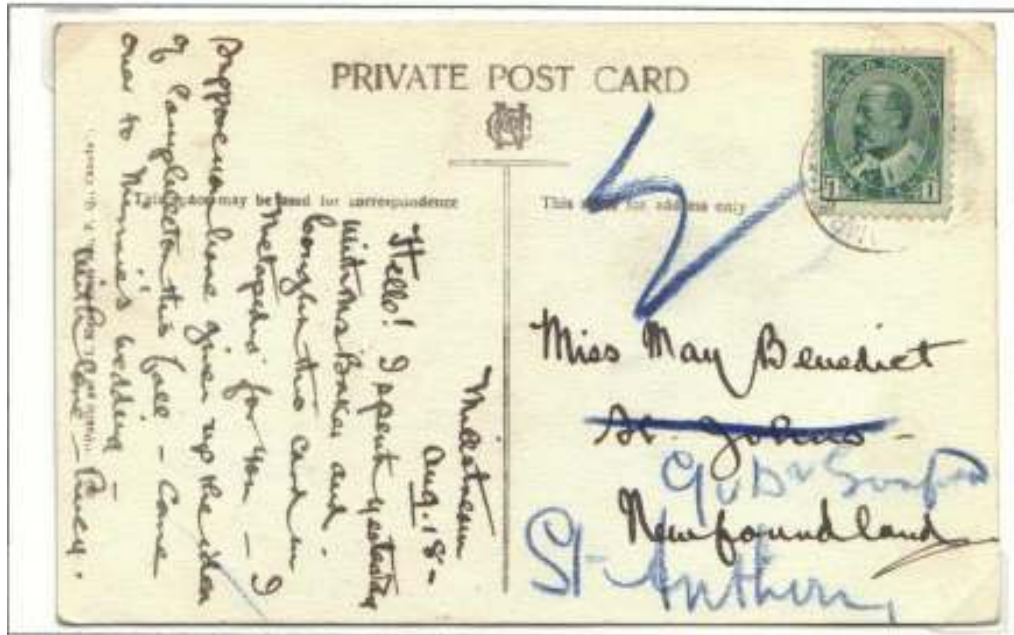 PRIVATE POST CARD
This may be used for correspondence
This for address only
Aug. 18 -
Hello! I spent yesterday
with Mrs Baker and
bought this card in
Metapedia for you - I
suppose you have given up the idea
of Campbellton this fall - Came
over to Minnie's wedding -
With love - Lucy.
CANADA POSTAGE
1 1
Miss May Benedict
St. Johns -
Newfoundland
c/o Dr
St. Anthony